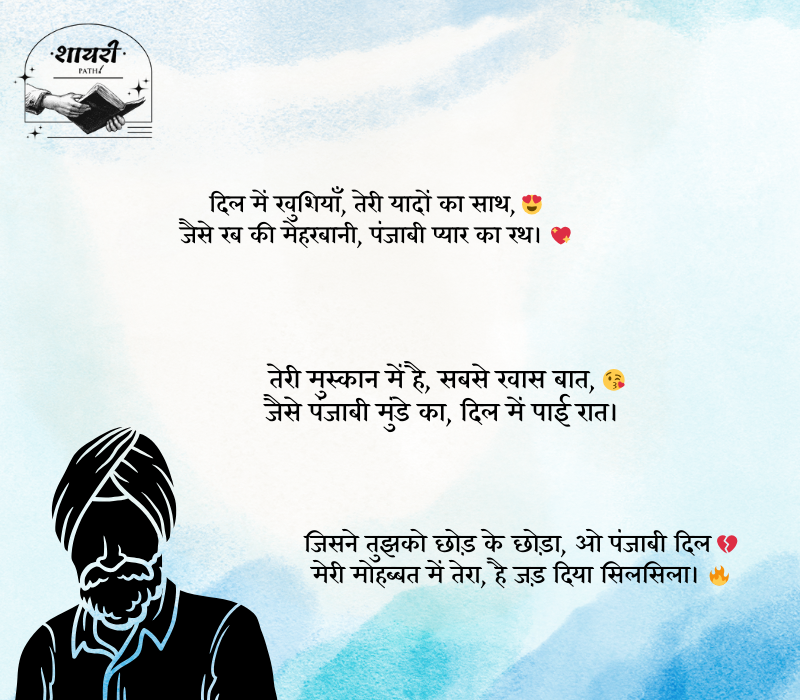 शायरी
PATH
दिल में खुशियाँ, तेरी यादों का साथ, 😍
जैसे रब की मेहरबानी, पंजाबी प्यार का रथ। 💖
तेरी मुस्कान में है, सबसे खास बात, 😘
जैसे पंजाबी मुंडे का, दिल में पाई रात।
जिसने तुझको छोड़ के छोड़ा, ओ पंजाबी दिल 💔
मेरी मोहब्बत में तेरा, है जड़ दिया सिलसिला। 🔥